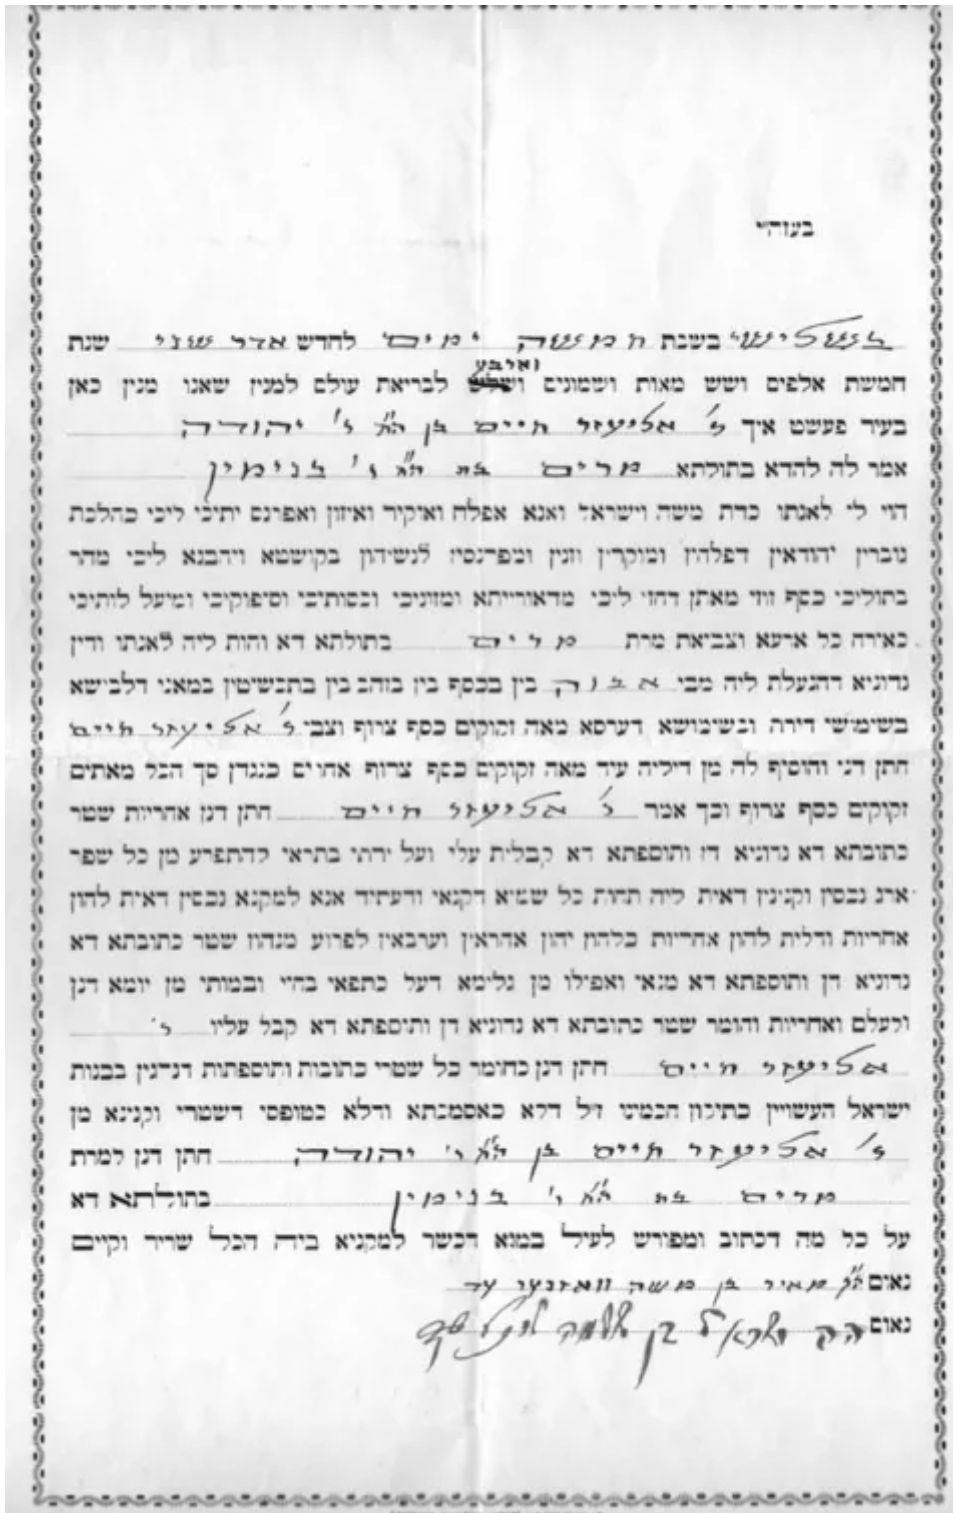 בעזה״י
בשלישי בשבת חמשה ימים לחדש אדר שני שנת
וארבע
חמשת אלפים ושש מאות ושמונים ושלש לבריאת עולם למנין שאנו מנין כאן
בעיר פעשט איך ר׳ אליעזר חיים בן הח״ ר׳ יהודה
אמר לה להדא בתולתא מרים בת הח״ ר׳ בנימין
הוי לי לאנתו כדת משה וישראל ואנא אפלח ואוקיר ואיזון ואפרנס יתיכי ליכי כהלכת
גוברין יהודאין דפלחין ומוקרין וזנין ומפרנסין לנשיהון בקושטא ויהבנא ליכי מהר
בתוליכי כסף זוזי מאתן דחזי ליכי מדאורייתא ומזוניכי וכסותיכי וסיפוקיכי ומיעל לותיכי
כאורח כל ארעא וצביאת מרת מרים בתולתא דא והות ליה לאנתו ודין
נדוניא דהנעלת ליה מבי אבוה בין בכסף בין בזהב בין בתכשיטין במאני דלבושא
בשימושי דירה ובשימושא דערסא מאה זקוקים כסף צרוף וצבי ר׳ אליעזר חיים
חתן דנן והוסיף לה מן דיליה עוד מאה זקוקים כסף צרוף אחרים כנגדן סך הכל מאתים
זקוקים כסף צרוף וכך אמר ר׳ אליעזר חיים חתן דנן אחריות שטר
כתובתא דא נדוניא דן ותוספתא דא קבלית עלי ועל ירתי בתראי להתפרע מן כל שפר
ארג נכסין וקנינין דאית ליה תחות כל שמיא דקנאי ודעתיד אנא למקנא נכסין דאית להון
אחריות ודלית להון אחריות כלהון יהון אחראין וערבאין לפרוע מנהון שטר כתובתא דא
נדוניא דן ותוספתא דא מנאי ואפילו מן גלימא דעל כתפאי בחיי ובמותי מן יומא דנן
ולעלם ואחריות וחומר שטר כתובתא דא נדוניא דן ותוספתא דא קבל עליו ר׳
אליעזר חיים חתן דנן כחומר כל שטרי כתובות ותוספתות דנהגין בבנות
ישראל העשויין כתיקון חכמינו ז״ל דלא כאסמכתא ודלא כטופסי דשטרי וקנינא מן
ר׳ אליעזר חיים בן הח״ ר׳ יהודה חתן דנן למרת
מרים בת הח״ ר׳ בנימין בתולתא דא
על כל מה דכתוב ומפורש לעיל במנא דכשר למקניא ביה הכל שריר וקיים
נאום הק׳ מאיר בן משה וואזנער עד
נאום הק בן